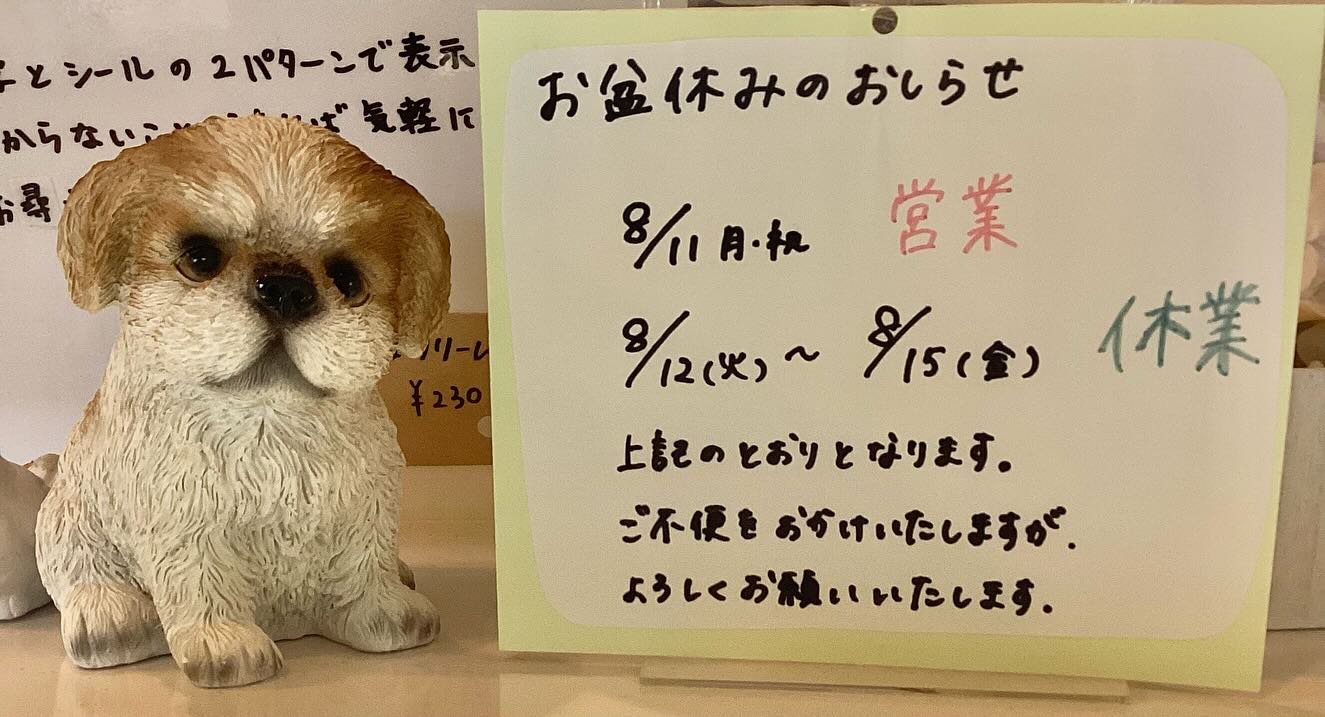 とシールの2パターンで表示
からないこと ば気軽に
お尋
リーレ
¥230
お盆休みのおしらせ
8/11 月・祝 営業
8/12(火)〜 8/15(金) 休業
上記のとおりとなります。
ご不便をおかけいたしますが、
よろしくお願いいたします。